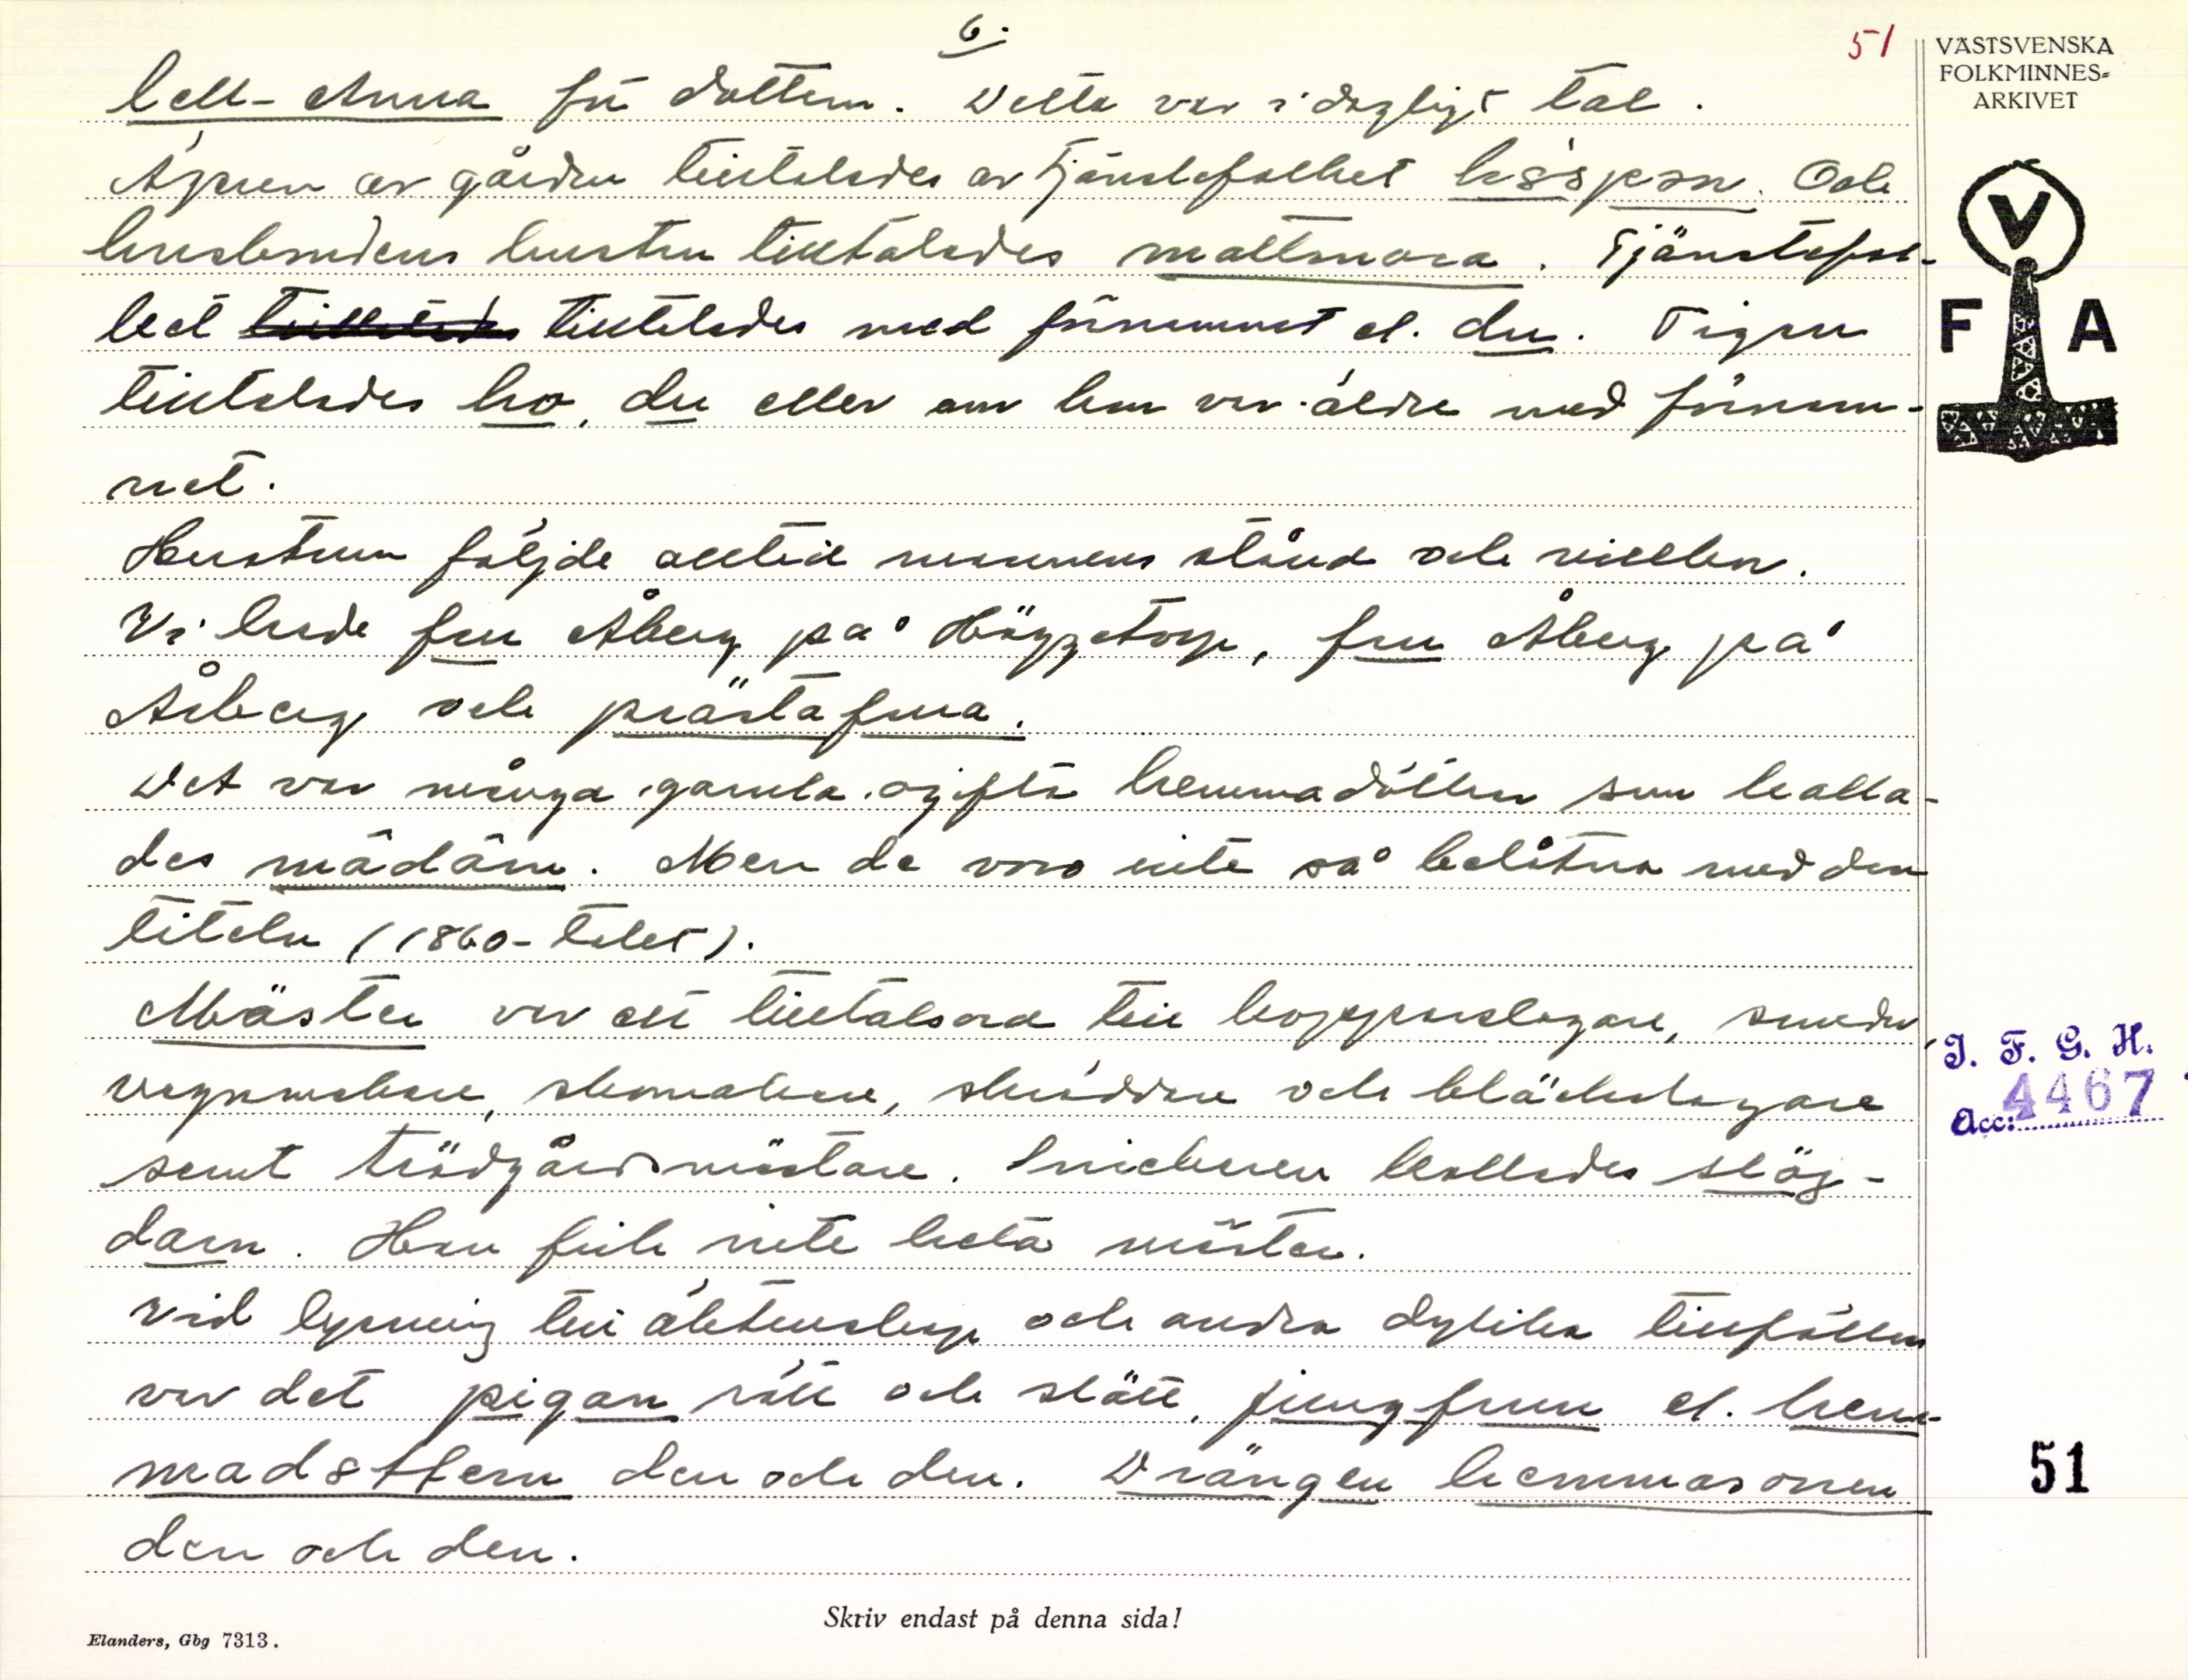 6.
51
VÄSTSVENSKA
FOLKMINNES=
ARKIVET
lell-Anna för dottern. Detta var i dagligt tal.
Ägaren av gården tilltalades av tjänstefolket hosspan. Och
husbondens hustru tilltalades mattmora. Tjänstefol-
ket tilltalades med förnamnet el. du. Pigan
tilltalades ho, du eller om hon var äldre med förnam-
net.
Hustrun följde alltid mannens stånd och villkor.
Vi hade fru Åberg på Höggetorp, fru Åberg på
Åsberg och prästafrua.
Det var många gamla ogifta hemmadöttrar som kalla-
des mâdâm. Men de voro inte så belåtna med den
titeln (1860-talet).
Mäster var ett tilltalsord till kopparslagare, smeder,
vagnmakare, skomakare, skräddare och bläckslagare
samt trädgårdsmästare. Snickaren kallades slöj-
darn. Han fick inte heta mäster.
Vid lysning till äktenskap och andra dylika tillfällen
var det pigan rätt och slätt, jungfrun el. hem-
madottern den och den. Drängen hemmasonen
den och den.
V
F A
J. F. G. H.
Acc: 4467
51
Skriv endast på denna sida!
Elanders, Gbg 7313.